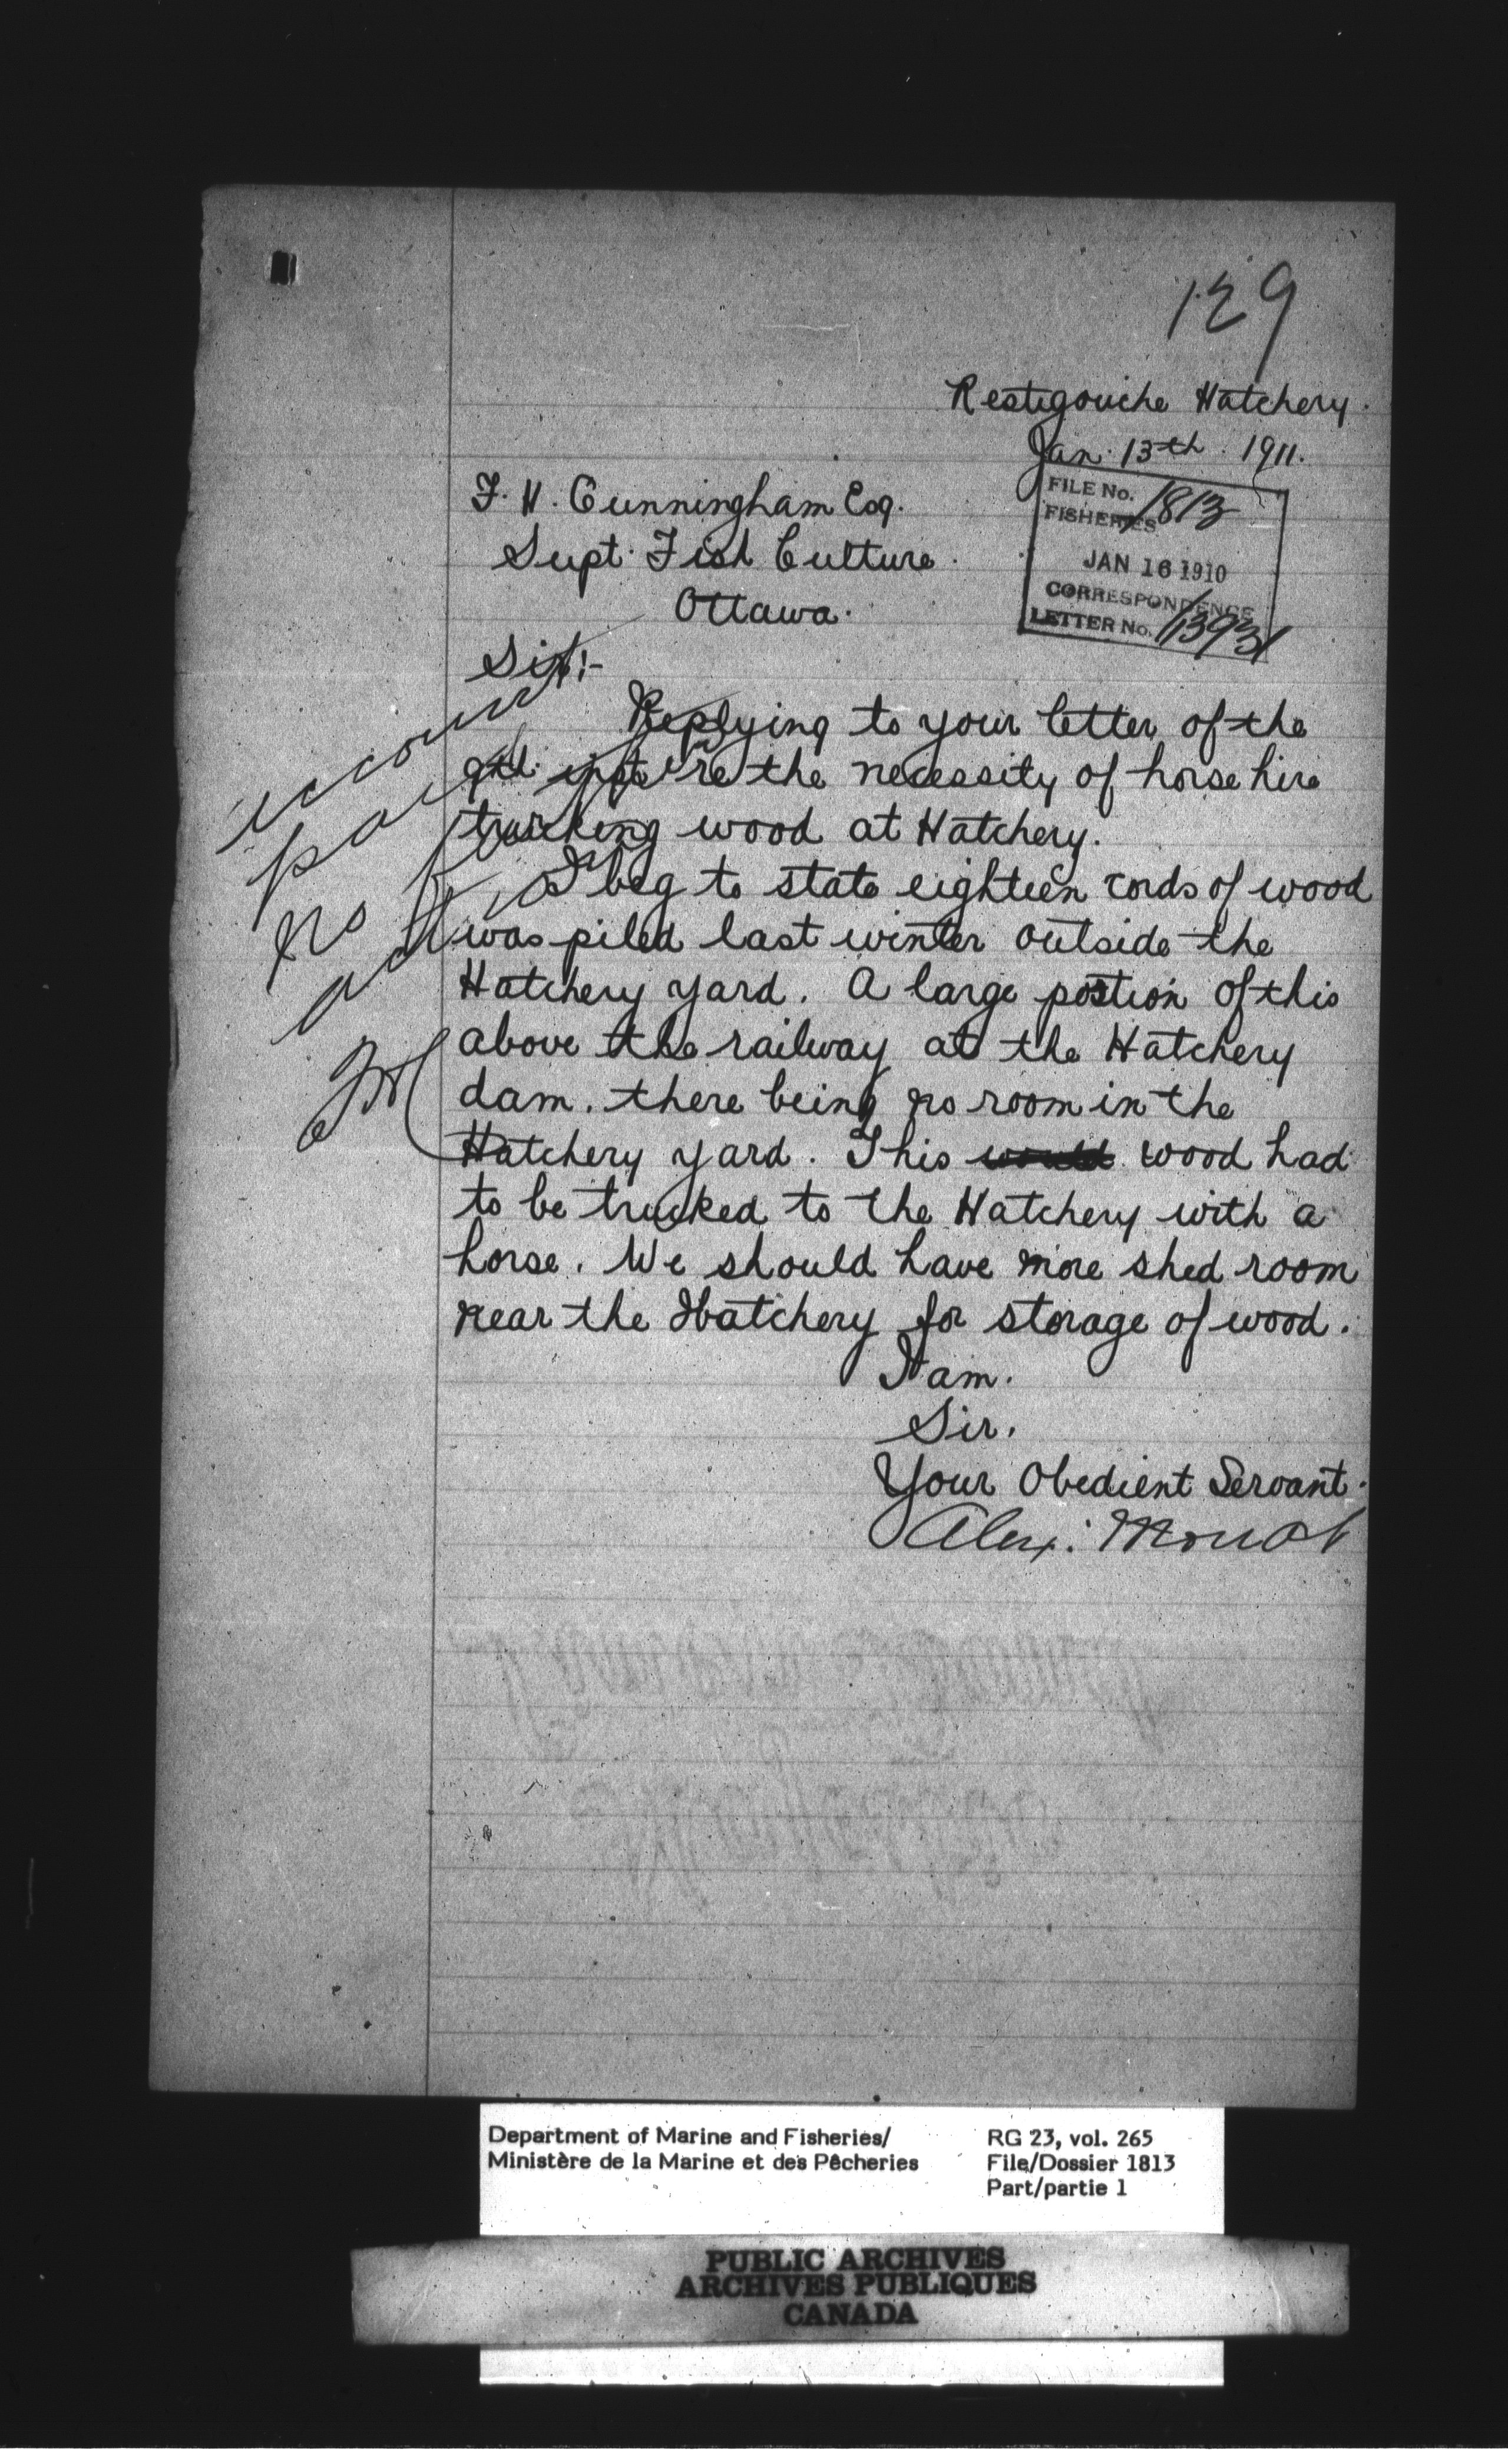 129
Restigouche Hatchery.
Jan. 13th. 1911.
F. H. Cunningham Esq.
Supt. Fish Culture.
Ottawa.
FILE No. 1813
FISHERIES
JAN 16 1910
CORRESPONDENCE
LETTER No. 13931
Sir:-
Replying to your letter of the
9th inst re the necessity of horse hire
trucking wood at Hatchery.
I beg to state eighteen cords of wood
was piled last winter outside the
Hatchery yard. A large portion of this
above the railway at the Hatchery
dam. there being no room in the
Hatchery yard. This would wood had
to be trucked to the Hatchery with a
horse. We should have more shed room
near the Hatchery for storage of wood.
I am.
Sir.
Your Obedient Servant.
Alex: Mowat
account
paid
no further
action
Department of Marine and Fisheries/
Ministère de la Marine et des Pêcheries
RG 23, vol. 265
File/Dossier 1813
Part/partie 1
PUBLIC ARCHIVES
ARCHIVES PUBLIQUES
CANADA